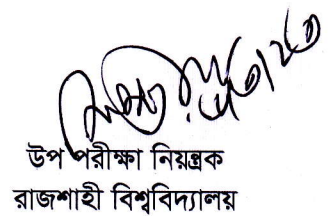 উপ পরীক্ষা নিয়ন্ত্রক
রাজশাহী বিশ্ববিদ্যালয়